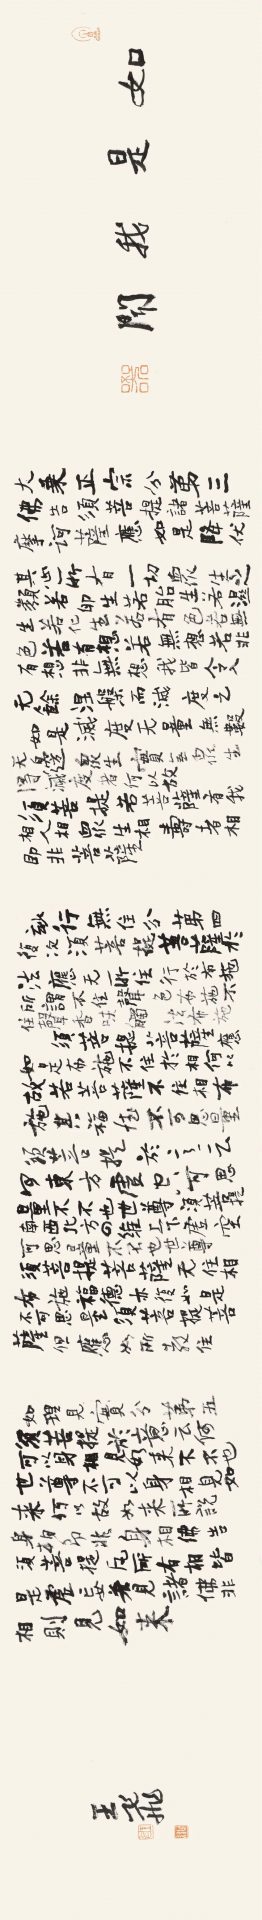 如是我聞
大乘正宗分第三
佛告須菩提諸菩薩
摩訶薩應如是降伏
其心所有一切眾生之
類若卵生若胎生若濕
生若化生若有色若無
色若有想若無想若非
有想非無想我皆令入
无餘涅槃而滅度之
如是滅度无量無數
无邊眾生實無眾生
得滅度者何以故
須菩提若菩薩有我
相人相眾生相壽者相
即非菩薩
妙行無住分第四
復次須菩提菩薩於
法應无所住行於布施
所謂不住色布施不
住聲香味觸法布施
須菩提菩薩應
如是布施不住於相何以
故若菩薩不住相布
施其福德不可思量
須菩提於意云
何東方虛空可思
量不不也世尊須菩提
南西北方四維上下虛空
可思量不不也世尊
須菩提菩薩无住相
布施福德亦復如是
不可思量須菩提菩
薩但應如所教住
如理見實分第五
須菩提於意云何
可以身相見如來不不也
世尊不可以身相見如
來何以故如來所說
身相即非身相佛告
須菩提凡所有相皆
是虛妄若見諸相非
相則見如來
王飛